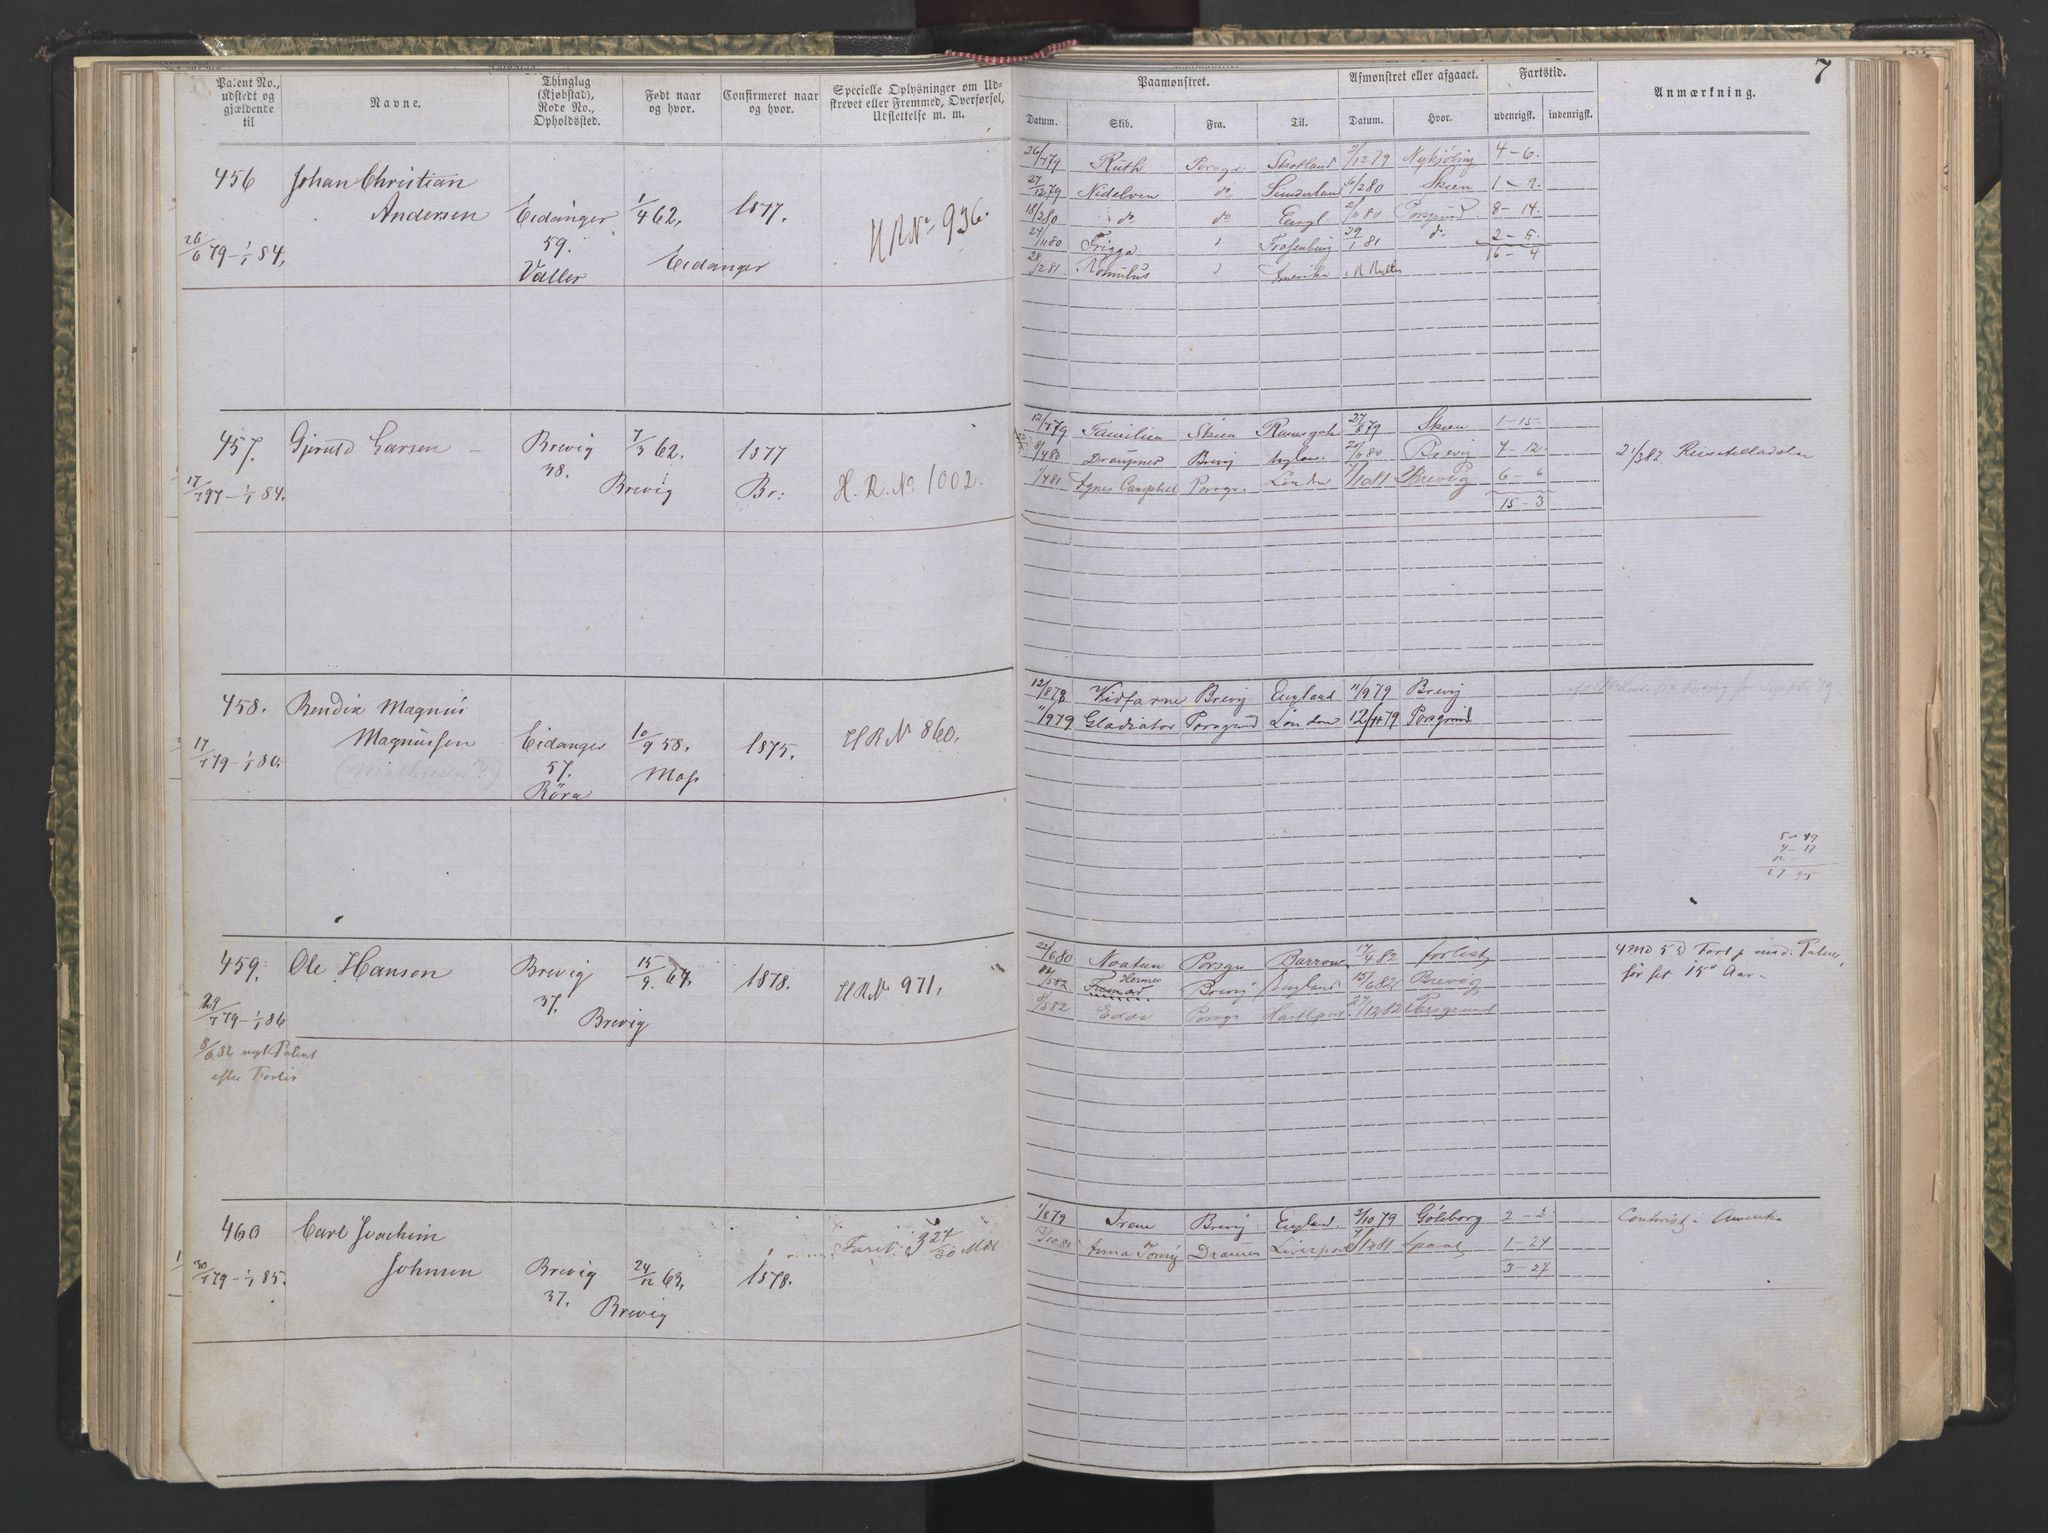 7
Patent No., udstedt og gjældende til
Navne.
Thinglag (Kjøbstad), Rode No., Opholdssted.
Født naar og hvor.
Confirmeret naar og hvor.
Specielle Oplysninger om Udskrevet eller Fremmed, Overførsel, Udslettelse m. m.
Paamønstret.
Afmønstret eller afgaaet.
Fartstid.
Anmærkning.
Datum. Skib. Fra. Til. Datum. Hvor. udenrigst. indenrigst.
456 Johan Christian
Andersen Eidanger 1/4 62, 1877. HRNo 936.
26/6 79 – 1/1 84, 59. Eidanger
Valler
26/7 79 Ruth Porsgr. Skotland /12 79 Nykjøbing 4 – 6.
27/12 79 Nidelven do Sunderland 6/2 80 Skien 1 – 9.
18/2 80 do do Engl 2/11 80 Porsgrund 8 – 14.
27/11 80 Frigga 29/1 81 do 2 – 5.
16 – 4
28/2 81 Romulus Amerika
457. Gjeruld Larsen Brevig 7/3 62. 1877
38. Brevig Br: H. R. No 1002.
17/7 97 – 1/1 84.
12/7 79 Familien Skien Ramsgate 27/8 79 Skien 1 – 15.
8/4 80 Draupner Brevig 20/11 80 Brevig 7 – 12.
/4 81 Agnes Campbel Porsgr. London /10 81 Brevig 6 – 6
15 – 3
21/3 82
458. Bendix Magnus
Magnussen Eidanger 10/9 58. 1875. HRN 860.
17/7 79 – 1/1 80. (Mathiesen?) 57. Moss
Röra
12/8 78 Hidfarne Brevig England 11/9 79 Brevig
11/9 79 Gladiator Porsgrund London 12/11 79 Porsgrund
459. Ole Hansen Brevig 15/9 64. 1878. HRNo 971,
37. Brevig
29/7 79 – 1/1 86
8/6 82 nyt Patent
efter Forlis
22/6 80 Noatun Porsgr Barrow 17/4 82 forlist
Hermes Brevig England 15/6 82 Brevig
/8 82 Edda Porsgr 27/12 82 Porsgrund
4 Md 5 D Fart
før fyt 15de Aar.
460 Carl Joachim
Johnsen Brevig 24/12 63, 1878.
30/7 79 – 1/1 85. 37. Brevig
Fart: 3 27/30 Mdr.
1/8 79 Irene Brevig England 3/10 79 Göteborg 2 –
Anna Tomy Dramen Liverpool 1 – 27
3 – 27
Amerika